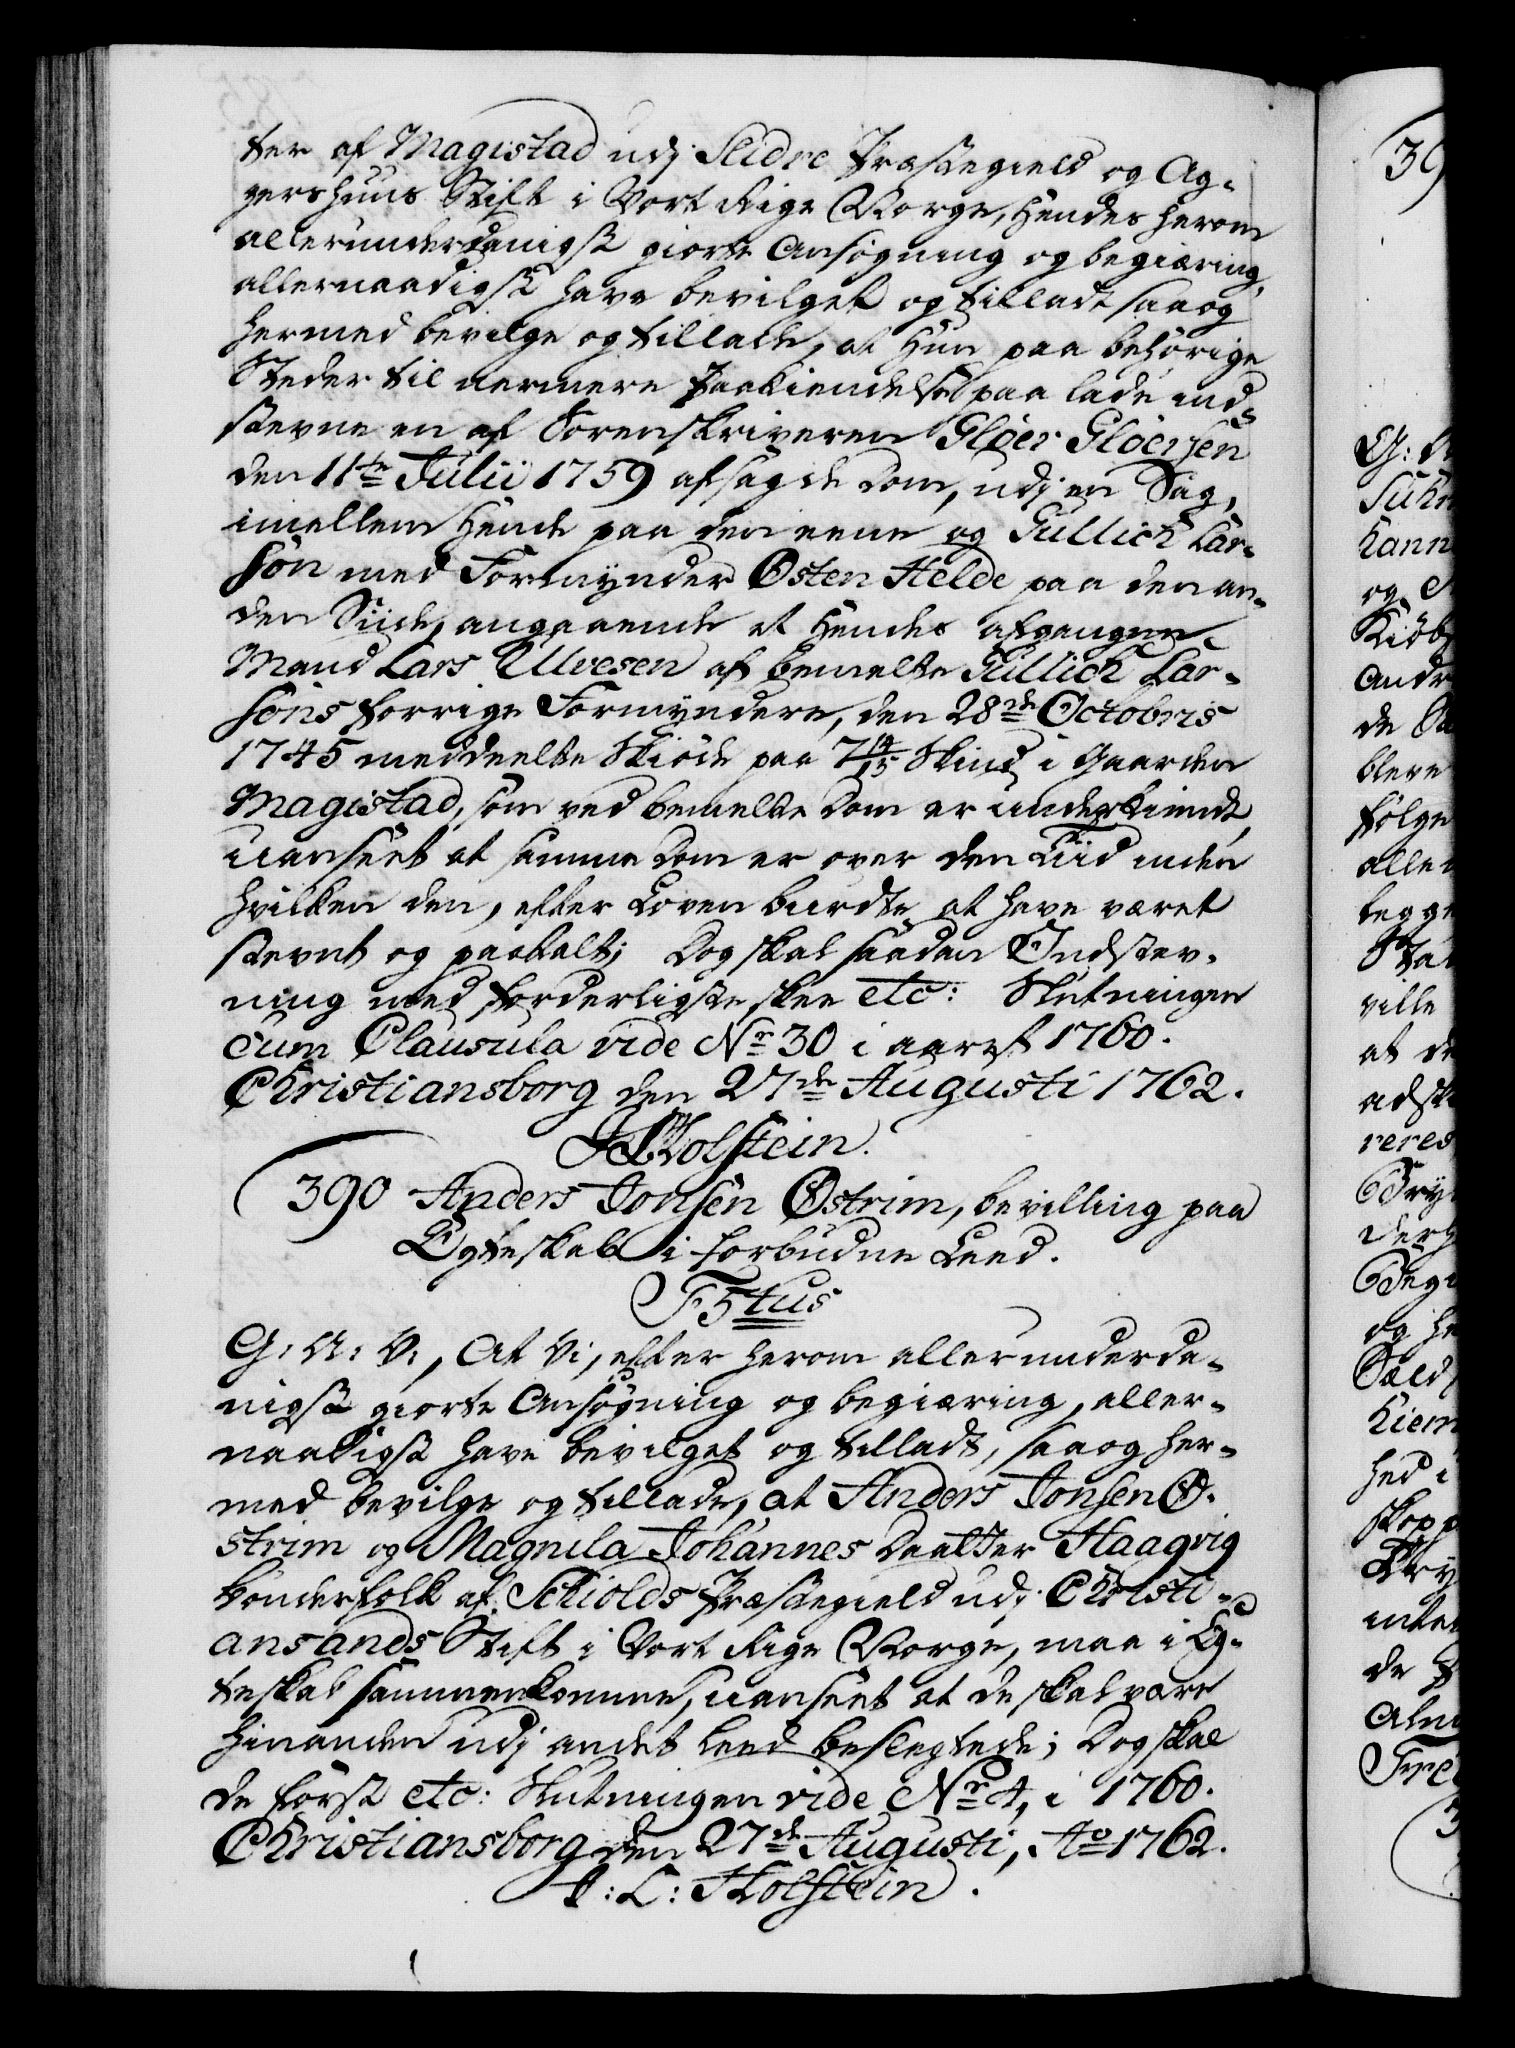 ter af Magistad udj Slidre Præstegield og Ag-
gershuus Stift i Vort Rige Norge, Hendes herom
allerunderdanigst giorte Ansøgning og begiæring,
allernaadigst have bevilget og tilladt saa og
hermed bevilge og tillade, at Hun paa behørige
Steder til nermere Paakiendelse paa lade ind-
stevne en af Sorenskriveren Gløer Gløersen
den 11te Julii 1759 afsagde Dom, udj en Sag,
imellem Hende paa den eene og Gullich Lar-
søn med Formynder Østen Helde paa den an-
den Siide, angaaende et Hendes afgangne
Mand Lars Ulvesen af bemelte Gullich Lar-
søns forrige Formyndere, den 28de Octobris
1745 meddeelte Skiøde paa 7 14/15 Skind i Gaarden
Magistad, som ved bemelte Dom er underkiendt,
uanseet at samme Dom er over den Tiid inden
hvilken den, efter Loven burdte at have været
stevnt og paakalt; Dog skal saadan Indstev-
ning med forderligste skee etc: Slutningen
cum Clausula vide No 30 i aaret 1760.
Christiansborg den 27de Augusti 1762.
J L Holstein.
390 Anders Jonsen Østrim, bevilling paa
Egteskab i forbudne Leed.
F5tus
G: A: V:, At Vi, efter herom allerunderda-
nigst giorte Ansøgning og begiæring, aller-
naadigst have bevilget og tilladt, saa og her-
med bevilge og tillade, at Anders Jonsen Ø-
strim og Magnila Johannes Daatter Haagvig
bønderfolk af Schiolds Præstegield udj Christi-
ansands Stift i Vort Rige Norge, maa i Eg-
teskab sammenkomme, uanseet at de skal være
hinanden udj andet Leed beslegtede; Dog skal
de først etc: Slutningen vide No 4, i 1760.
Christiansborg den 27de Augusti, Ao 1762.
J: L: Holstein.